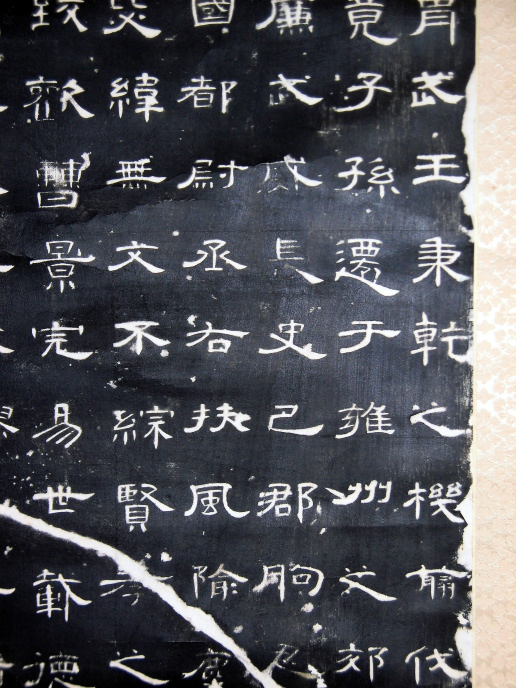 胄武王秉乾之機翦伐
竟子孫遷于雍州之郊
廉武威長史巴郡朐忍
國都尉丞右扶風隃麋
毖緯無文不綜賢孝之
致歡曹景完易世載德